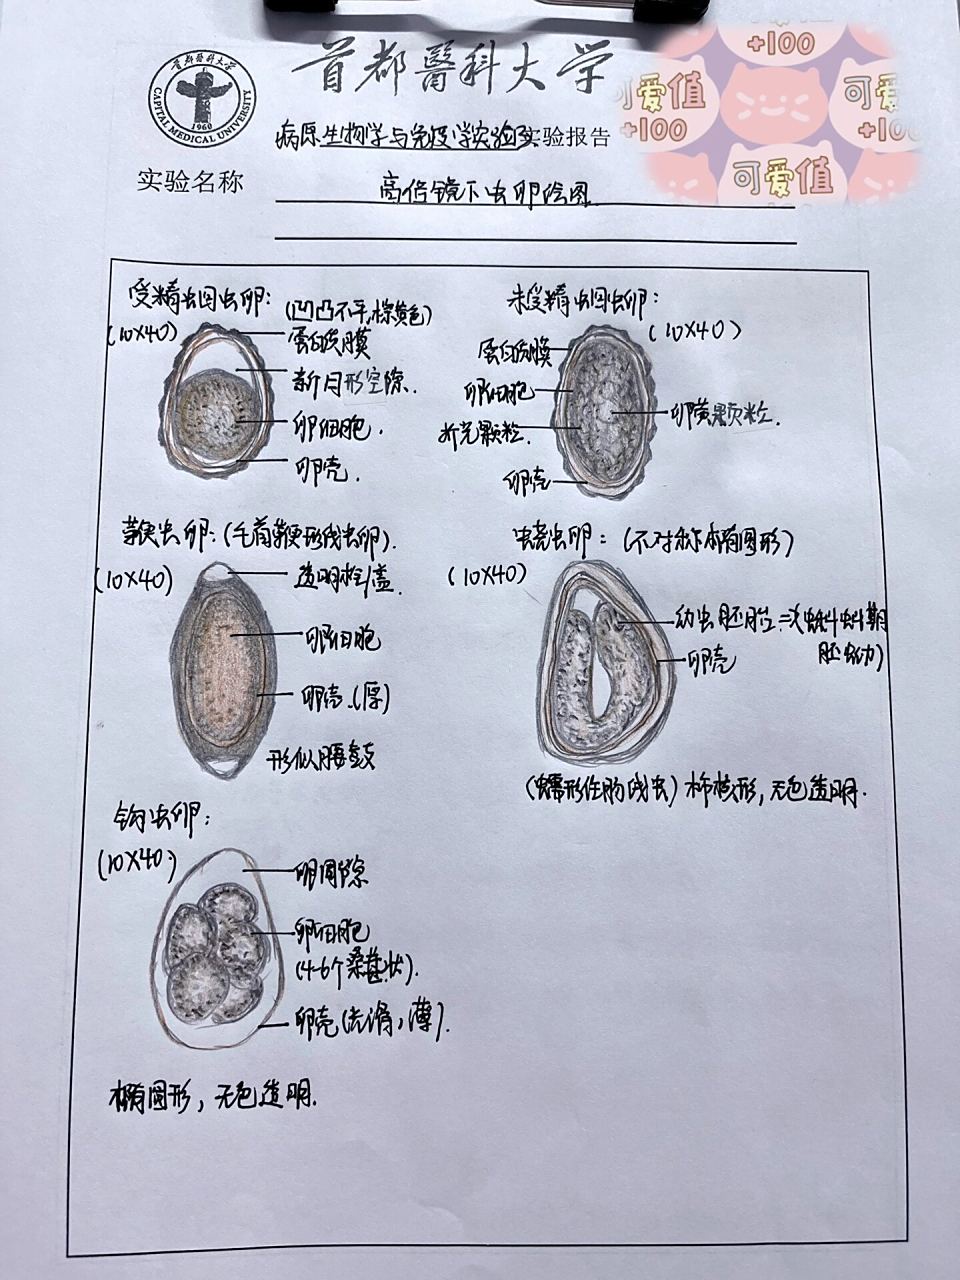 首都醫科大学
首都醫科大学
CAPITAL MEDICAL UNIVERSITY
1960
可爱值
+100
+100
可爱值
+100
可爱值
病原生物学与免疫学实验实验报告
实验名称
高倍镜下虫卵绘图
受精蛔虫卵:
(10×40)
(凹凸不平,棕黄色)
蛋白质膜
新月形空隙.
卵细胞.
卵壳.
未受精蛔虫卵:
(10×40)
蛋白质膜
卵细胞
折光颗粒.
卵壳
卵黄颗粒.
鞭虫卵:(毛首鞭形线虫卵).
(10×40)
透明栓/盖.
卵细胞
卵壳.(厚)
形似腰鼓
蛲虫卵:(不对称椭圆形)
(10×40)
幼虫胚胎
蝌蚪期
卵壳
(蠕形住肠线虫)柿核形,无色透明.
钩虫卵:
(10×40)
卵周隙
卵细胞
(4-6个桑葚状).
卵壳(光滑,薄).
椭圆形,无色透明.